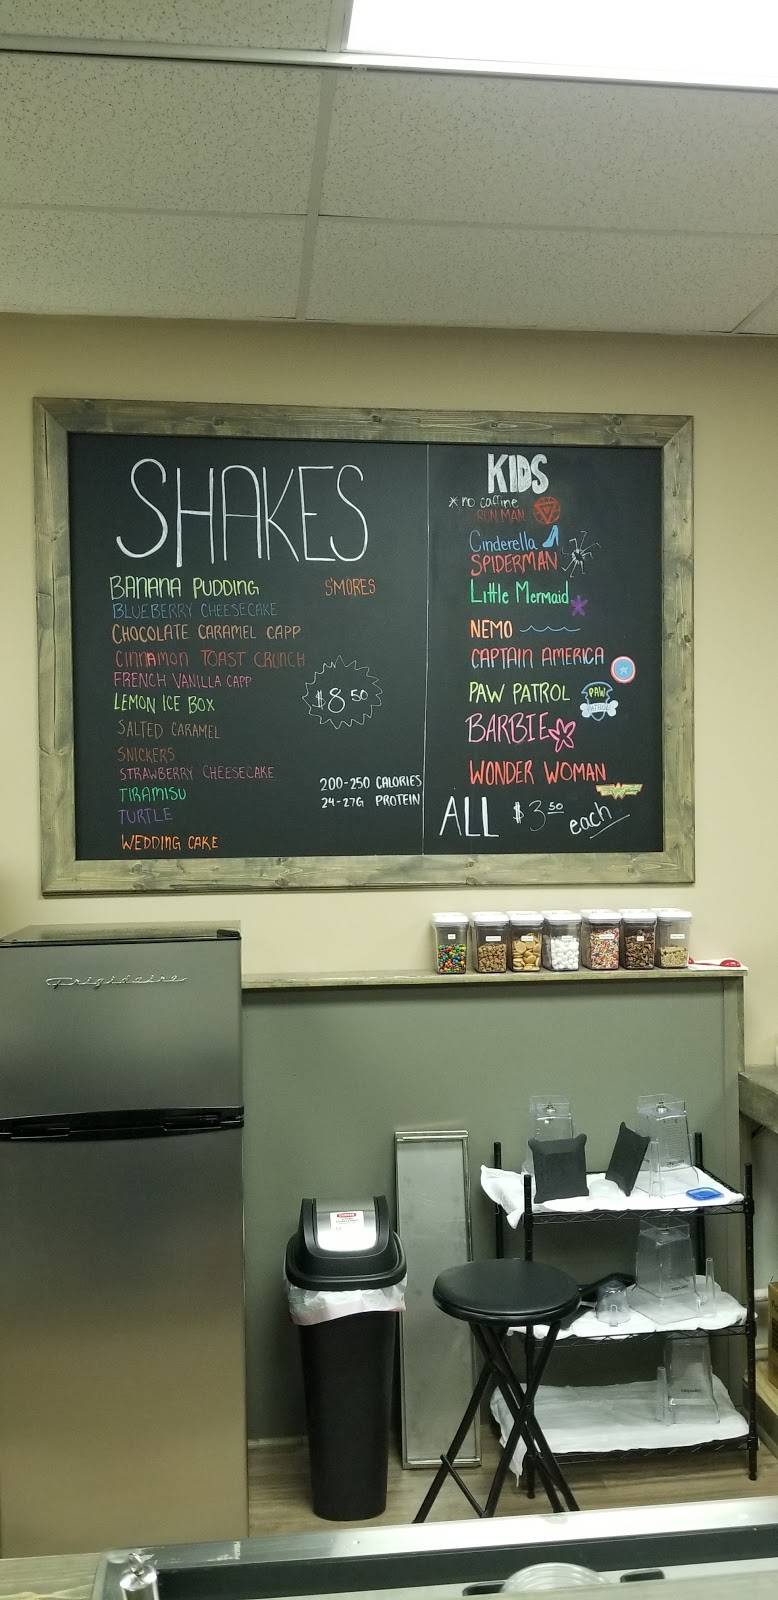 SHAKES
BANANA PUDDING
S'MORES
BLUEBERRY CHEESECAKE
CHOCOLATE CARAMEL CAPP
CINNAMON TOAST CRUNCH
FRENCH VANILLA CAPP
LEMON ICE BOX
SALTED CARAMEL
SNICKERS
STRAWBERRY CHEESECAKE
TIRAMISU
TURTLE
WEDDING CAKE
$8.50
200-250 CALORIES
24-27G PROTEIN
KIDS
* no caffine
IRON MAN
Cinderella
SPIDERMAN
Little Mermaid
NEMO
CAPTAIN AMERICA
PAW PATROL
PAW
PATROL
BARBIE
WONDER WOMAN
ALL $3.50 each
Frigidaire